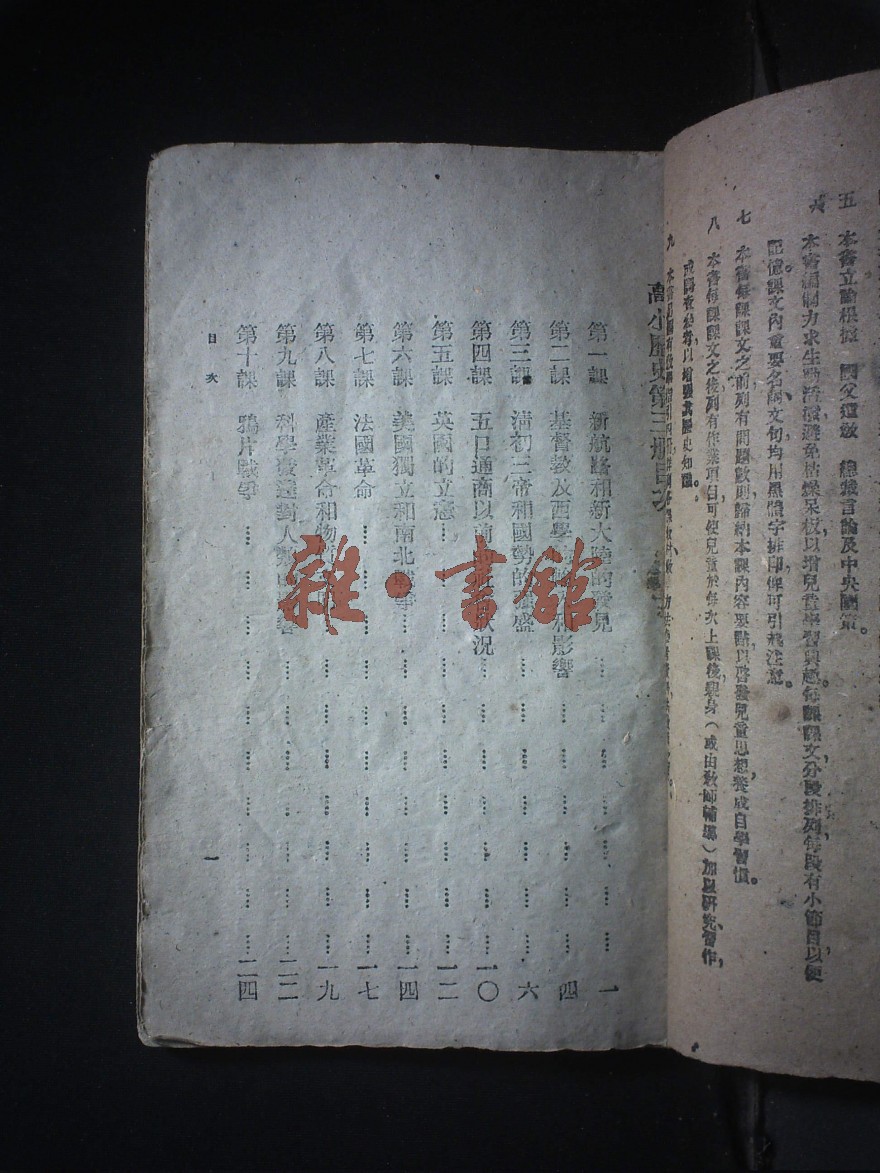 五　本書立論根據　國父遺敎　總裁言論及中央國策。
六　本書編制力求生動活潑避免枯燥呆板以增兒童學習興趣每課課文分段排列每段有小節目以便
記憶課文內重要名詞文句均用黑體字排印俾可引起注意。
七　本書每課課文之前列有問題數則歸納本課內容要點以啓發兒童思想養成自學習慣。
八　本書每課課文之後列有作業項目可使兒童於每次上課後親身（或由敎師輔導）加以研究習作，
以增强其歷史知識。
九　本書
高小歷史第三册目次
第一課　新航路和新大陸的發見…………一
第二課　基督敎及西學　影響…………四
第三課　清初三帝和國勢的　盛…………六
第四課　五口通商以前　狀況…………一〇
第五課　英國的立憲…………一二
第六課　美國獨立和南北戰爭…………一四
第七課　法國革命…………一七
第八課　產業革命和物質…………一九
第九課　科學發達對人類　響…………二二
第十課　鴉片戰爭…………二四
目次
一
雜·書館